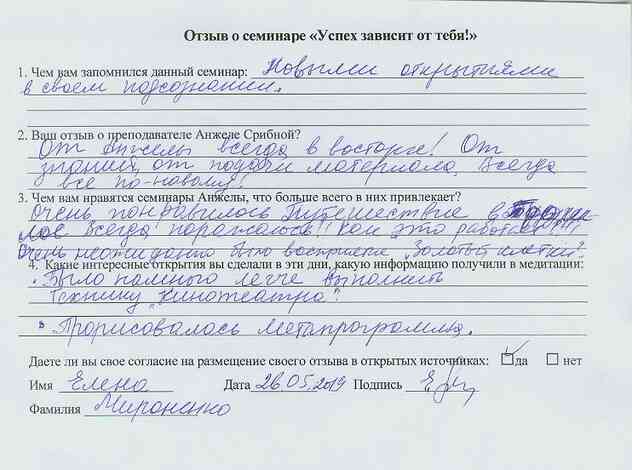 Отзыв о семинаре «Успех зависит от тебя!»
1. Чем вам запомнился данный семинар: Новыми открытиями
в своем подсознании.
2. Ваш отзыв о преподавателе Анжеле Срибной?
От Анжелы всегда в восторге! От
знаний, от подачи материала. Всегда
все по-новому!
3. Чем вам нравятся семинары Анжелы, что больше всего в них привлекает?
Очень понравилось Путешествие в
Всегда поражаюсь! Как это работает!!!
Очень неожиданно было восприятие "Золотой клетки".
4. Какие интересные открытия вы сделали в эти дни, какую информацию получили в медитации:
Было намного легче выполнить
технику "Кинотеатра"
Прорисовалась метапрограмма.
Даете ли вы свое согласие на размещение своего отзыва в открытых источниках: да нет
Имя Елена Дата 26.05.2019 Подпись
Фамилия Мироненко